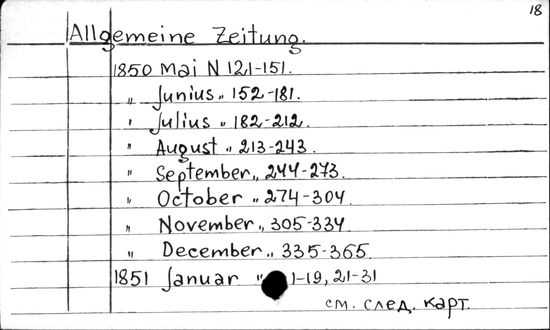 18
Allgemeine Zeitung.
1850 Mai N 121-151.
" Junius " 152-181.
" Julius " 182-212.
" August " 213-243.
" September " 244-273.
" October " 274-304.
" November " 305-334.
" December " 335-365.
1851 Januar " 1-19, 21-31
см. след. карт.